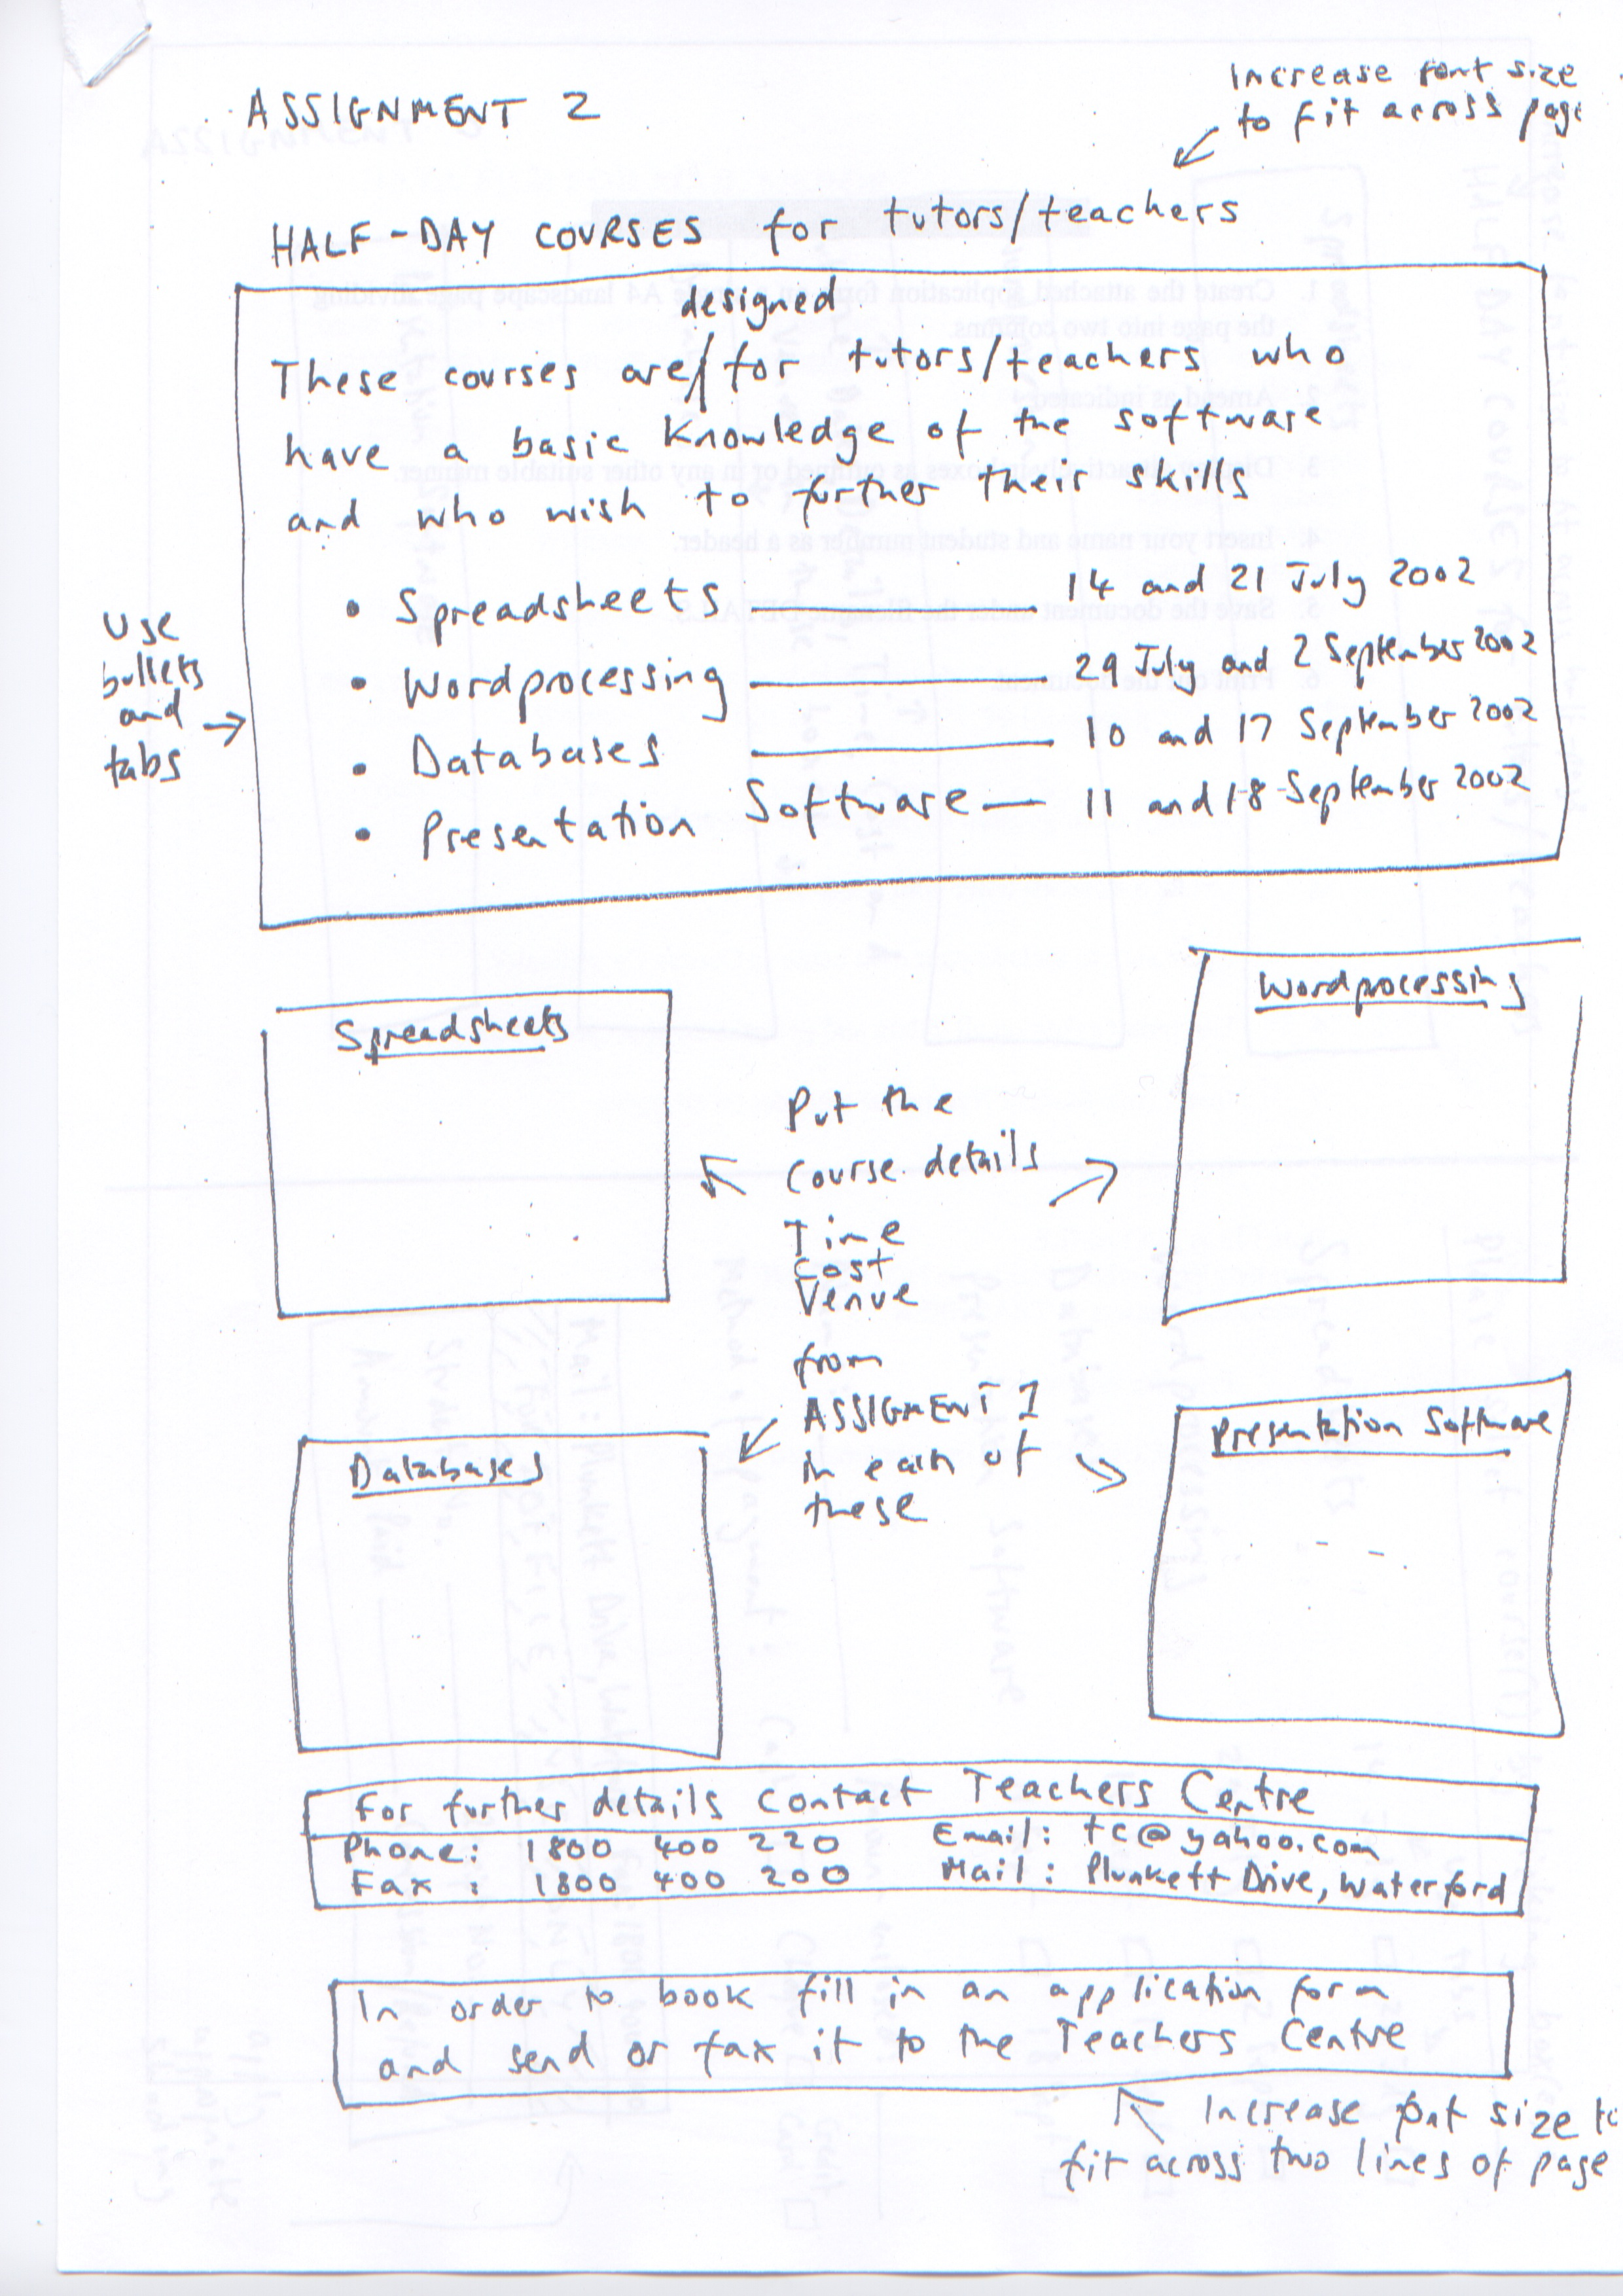 ASSIGNMENT 2
Increase font size
to fit across page
HALF-DAY COURSES for tutors/teachers
designed
These courses are/for tutors/teachers who
have a basic knowledge of the software
and who wish to further their skills
Use
bullets
and
tabs
• Spreadsheets 14 and 21 July 2002
• Wordprocessing 29 July and 2 September 2002
• Databases 10 and 17 September 2002
• Presentation Software 11 and 18 September 2002
Spreadsheets
Wordprocessing
Put the
course details
Time
Cost
Venue
from
ASSIGMENT 1
in each of
these
Databases
Presentation Software
For further details contact Teachers Centre
Phone: 1800 400 220 Email: tc@yahoo.com
Fax : 1800 400 200 Mail: Plunkett Drive, Waterford
In order to book fill in an application form
and send or fax it to the Teachers Centre
Increase font size to
fit across two lines of page